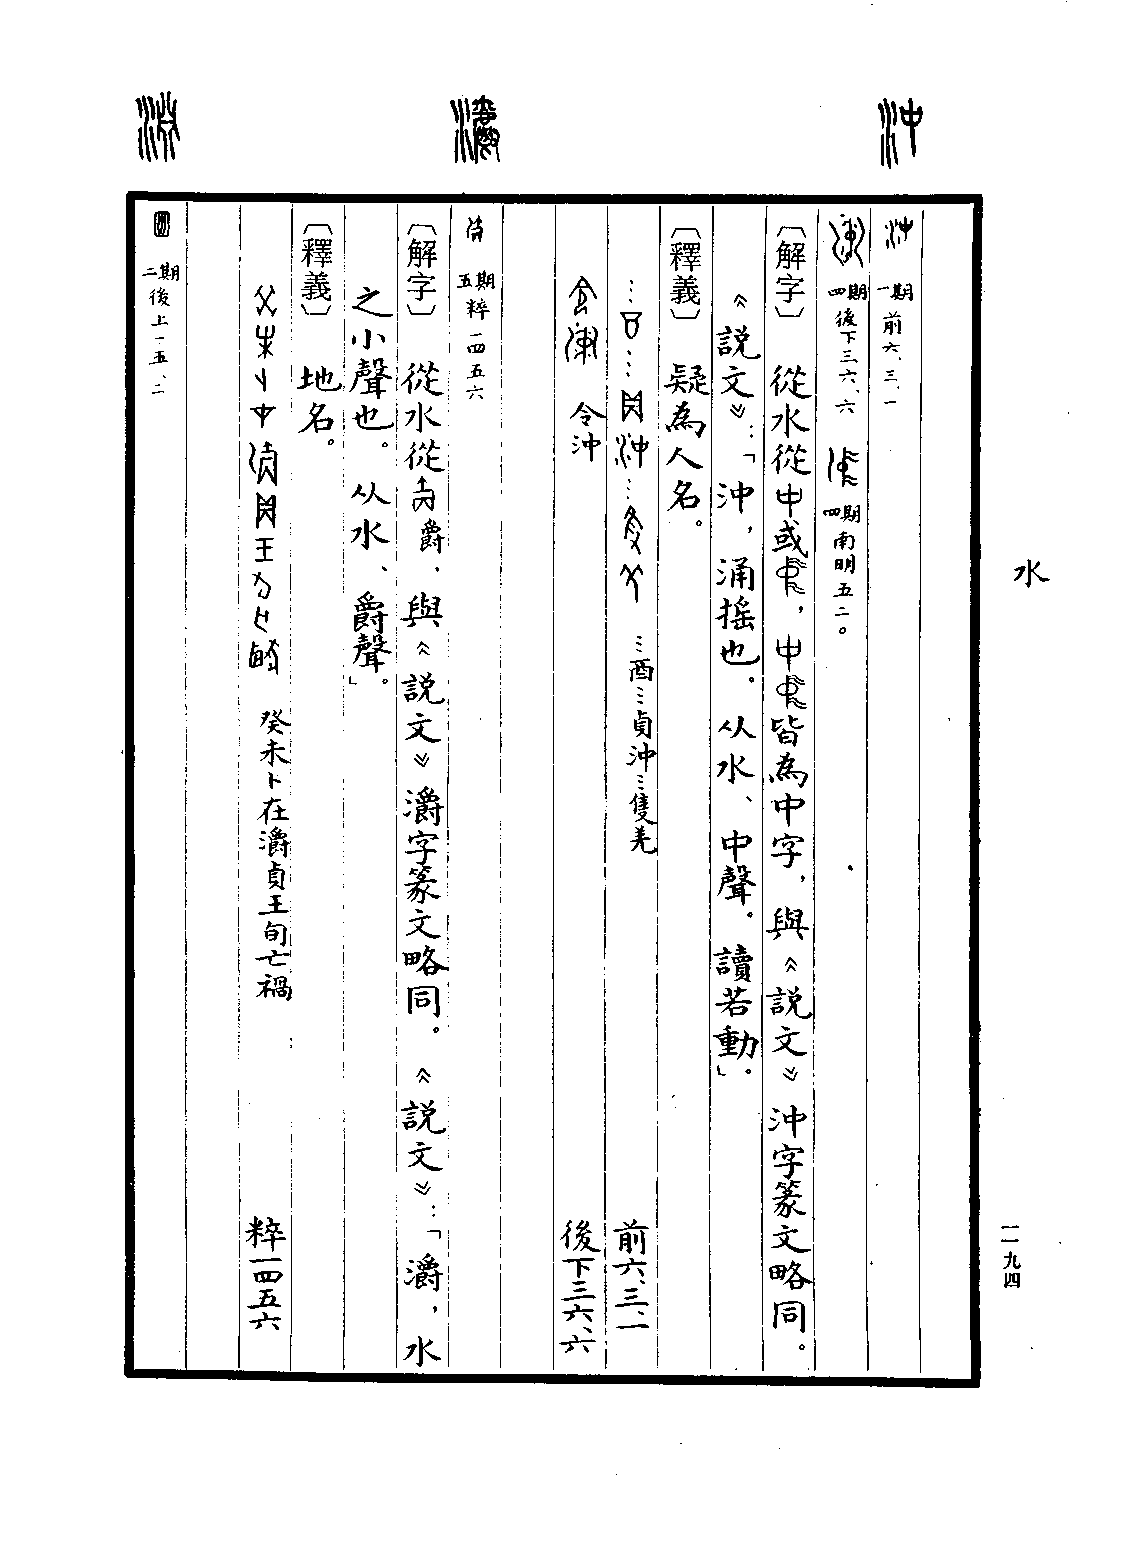 水
一一九四
沖
瀞
淵
一期 前六、三、一
四期 後下三六、六 四期 南明五二。
〔解字〕 從水從中或，中皆為中字，與《說文》沖字篆文略同。
《說文》：「沖，涌摇也。从水、中聲。讀若動」。
〔釋義〕 疑為人名。
…酉…貞沖…隻羌 前六、三、一
令沖 後下三六、六
五期 粹一四五六
〔解字〕 從水從爵，與《說文》灂字篆文略同。《說文》：「灂，水
之小聲也。从水、爵聲」。
〔釋義〕 地名。
癸未卜在灂貞王旬亡禍 粹一四五六
二期 後上一五、二